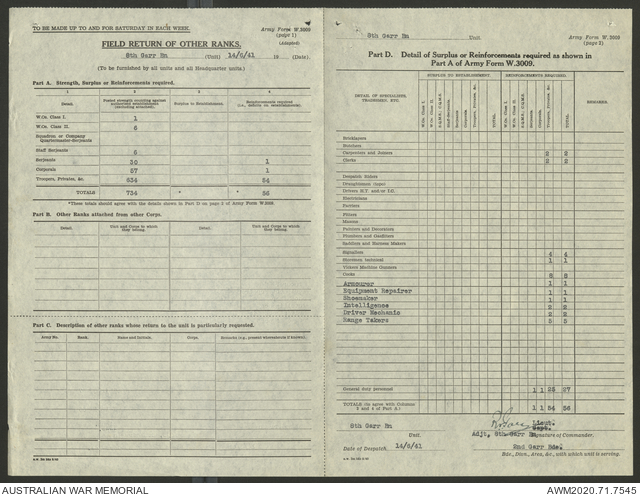 TO BE MADE UP TO AND FOR SATURDAY IN EACH WEEK.
Army Form W.3009
(page 1)
(Adapted)
FIELD RETURN OF OTHER RANKS.
8th Garr Bn (Unit) 14/6/41 19 (Date)
(To be furnished by all units and all Headquarter units.)
Part A. Strength, Surplus or Reinforcements required.
1 2 3 4
Detail. Posted strength counting against authorized establishments (excluding attached). Surplus to Establishment. Reinforcements required
W.Os. Class I. 1
W.Os. Class II. 6
Squadron or Company
Quartermaster-Serjeants
Staff Serjeants 6
Serjeants 30 1
Corporals 57 1
Troopers, Privates, &c. 634 54
TOTALS 734 * * 56
*These totals should agree with the details shown in Part D on page 2 of Army Form W.3009.
Part B. Other Ranks attached from other Corps.
Detail. Unit and Corps to which they belong. Detail. Unit and Corps to which they belong.
Part C. Description of other ranks whose return to the unit is particularly requested.
Army No. Rank. Name and Initials. Corps. Remarks (e.g., present whereabouts if known).
8th Garr Bn Unit.
Army Form W.3009
(page 2)
Part D. Detail of Surplus or Reinforcements required as shown in
Part A of Army Form W.3009.
SURPLUS TO ESTABLISHMENT. REINFORCEMENTS REQUIRED.
DETAIL OF SPECIALISTS, TRADESMEN, ETC.
W.Os. Class I. W.Os. Class II. Staff-Serjeants. Serjeants. Corporals. Troopers, Ptes., &c. TOTAL.
REMARKS.
Bricklayers
Butchers
Carpenters and Joiners 2 2
Clerks 2 2
Despatch Riders
Draughtsmen (topo)
Drivers M.T. and/or I.C.
Electricians
Farriers
Fitters
Masons
Painters and Decorators
Plumbers and Gasfitters
Saddlers and Harness Makers
Signallers 4 4
Storemen technical 1 1
Vickers Machine Gunners
Cooks 8 8
Armourer 1 1
Equipment Repairer 1 1
Shoemaker 1 1
Intelligence 2 2
Driver Mechanic 2 2
Range Takers 5 5
General duty personnel 1 1 25 27
TOTALS (to agree with Columns
3 and 4 of Part A.) 1 1 54 56
8th Garr Bn Unit.
Lieut.
Adjt, 8th Garr Bn Signature of Commander.
Date of Despatch 14/6/41
2nd Garr Bde.
Bde., Divn., Area, &c., with which unit is serving.
AUSTRALIAN WAR MEMORIAL
AWM2020.71.7545